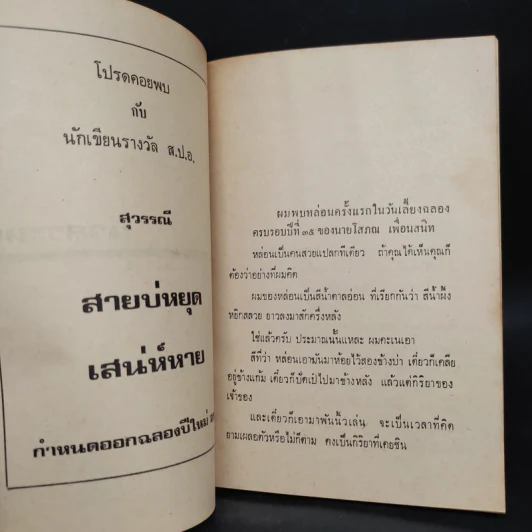 โปรดคอยพบ
กับ
นักเขียนรางวัล ส.ป.อ.
สุวรรณี
สายบ่หยุด
เสน่ห์หาย
กำหนดออกฉลองปีใหม่
ผมพบหล่อนครั้งแรกในวันเลี้ยงฉลอง
ครบรอบปีที่ ๓๕ ของนายโสภณ เพื่อนสนิท
หล่อนเป็นคนสวยแปลกทีเดียว ถ้าคุณได้เห็นคุณก็
ต้องว่าอย่างที่ผมคิด
ผมของหล่อนเป็นสีน้ำตาลอ่อน ที่เรียกกันว่า สีน้ำผึ้ง
หยิกสลวย ยาวลงมาสักครึ่งหลัง
ใช่แล้วครับ ประมาณนั้นแหละ ผมคะเนเอา
สีที่ว่า หล่อนเอามันมาห้อยไว้สองข้างบ่า เดี๋ยวก็เคลีย
อยู่ข้างแก้ม เดี๋ยวก็ปัดเปไปมาข้างหลัง แล้วแต่กิริยาของ
เจ้าของ
และเดี๋ยวก็เอามาพันนิ้วเล่น จะเป็นเวลาที่คิด
ยามเผลอตัวหรือไม่ก็ตาม คงเป็นกิริยาที่เคยชิน